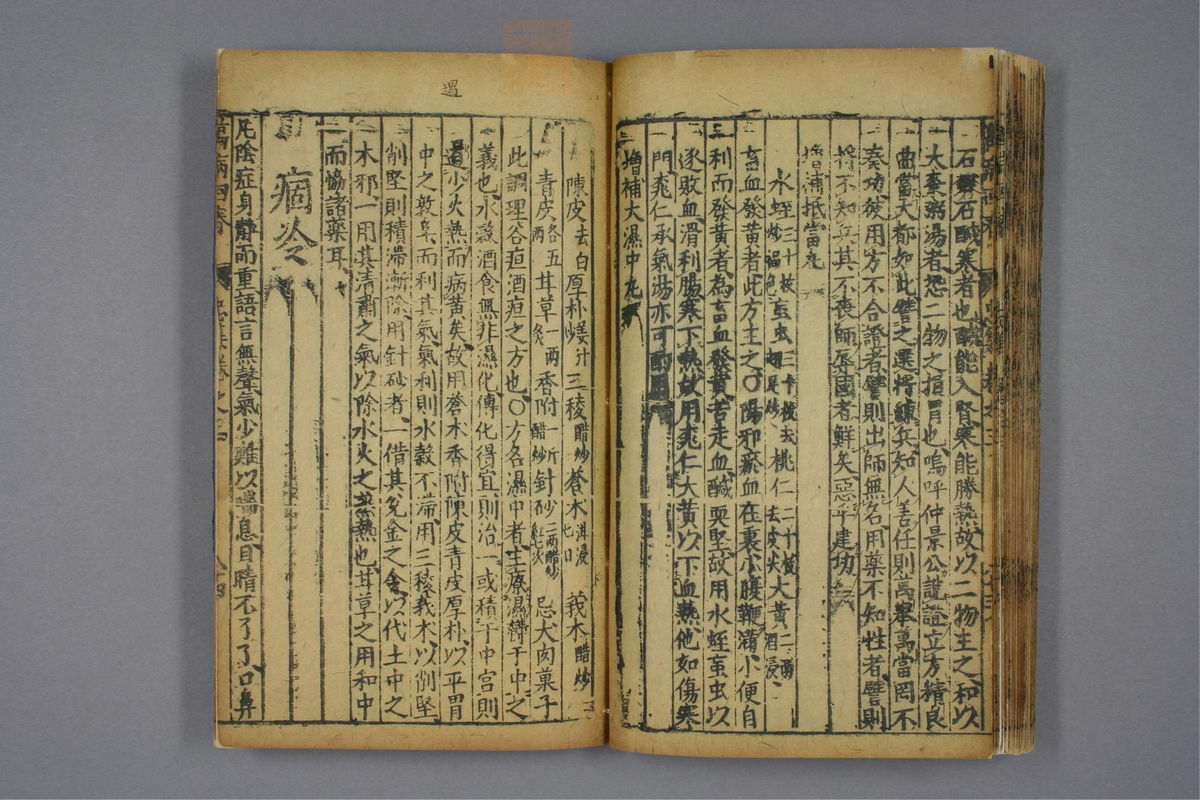 石礬石酸寒者也醎能入腎寒能勝熱故以二物主之和以
大麥粥湯者恐二物之損胃也嗚呼仲景公護證立方精良
曲當大都如此譬之選將練兵知人善任則萬舉萬當罔不
奏功彼用方不合證者譬則出師無名用藥不知性者譬則
將不知兵其不喪師辱國者鮮矣惡乎建功
增補抵當丸
水蛭三十枚炒褐色 虻虫三十枚去翅足炒 桃仁二十枚去皮尖 大黃二兩酒浸
畜血發黃者此方主之〇陽邪瘀血在裏小腹鞕滿小便自
利而發黃者為畜血發黃苦走血醎耎堅故用水蛭虻虫以
逐敗血滑利腸寒下熱故用桃仁大黃以下血熱他如傷寒
門桃仁承氣湯亦可酌用
增補大濕中丸
陳皮去白 厚朴姜汁炒 三稜醋炒 蒼术泔浸七 莪术醋炒
青皮各五兩 甘草一兩炙 香附一斤醋炒 針砂二兩醋炒紅七次 忌犬肉菓子
此調理谷疸酒疸之方也〇方名濕中者主療濕欝于中之
義也水穀酒食無非濕化傳化得宜則治一或積于中宮則
遺少火熱而病黃矣故用蒼术香附陳皮青皮厚朴以平胃
中之敦阜而利其氣氣利則水穀不滯用三稜莪术以削堅
削堅則積滯漸除用針砂者一借其兌金之令以代土中之
木邪一用其清肅之氣以除水火之蒸熱也甘草之用和中
而協諸藥耳
痼冷
凡陰症身靜而重語言無聲氣少難以喘息目睛不了了口鼻
過